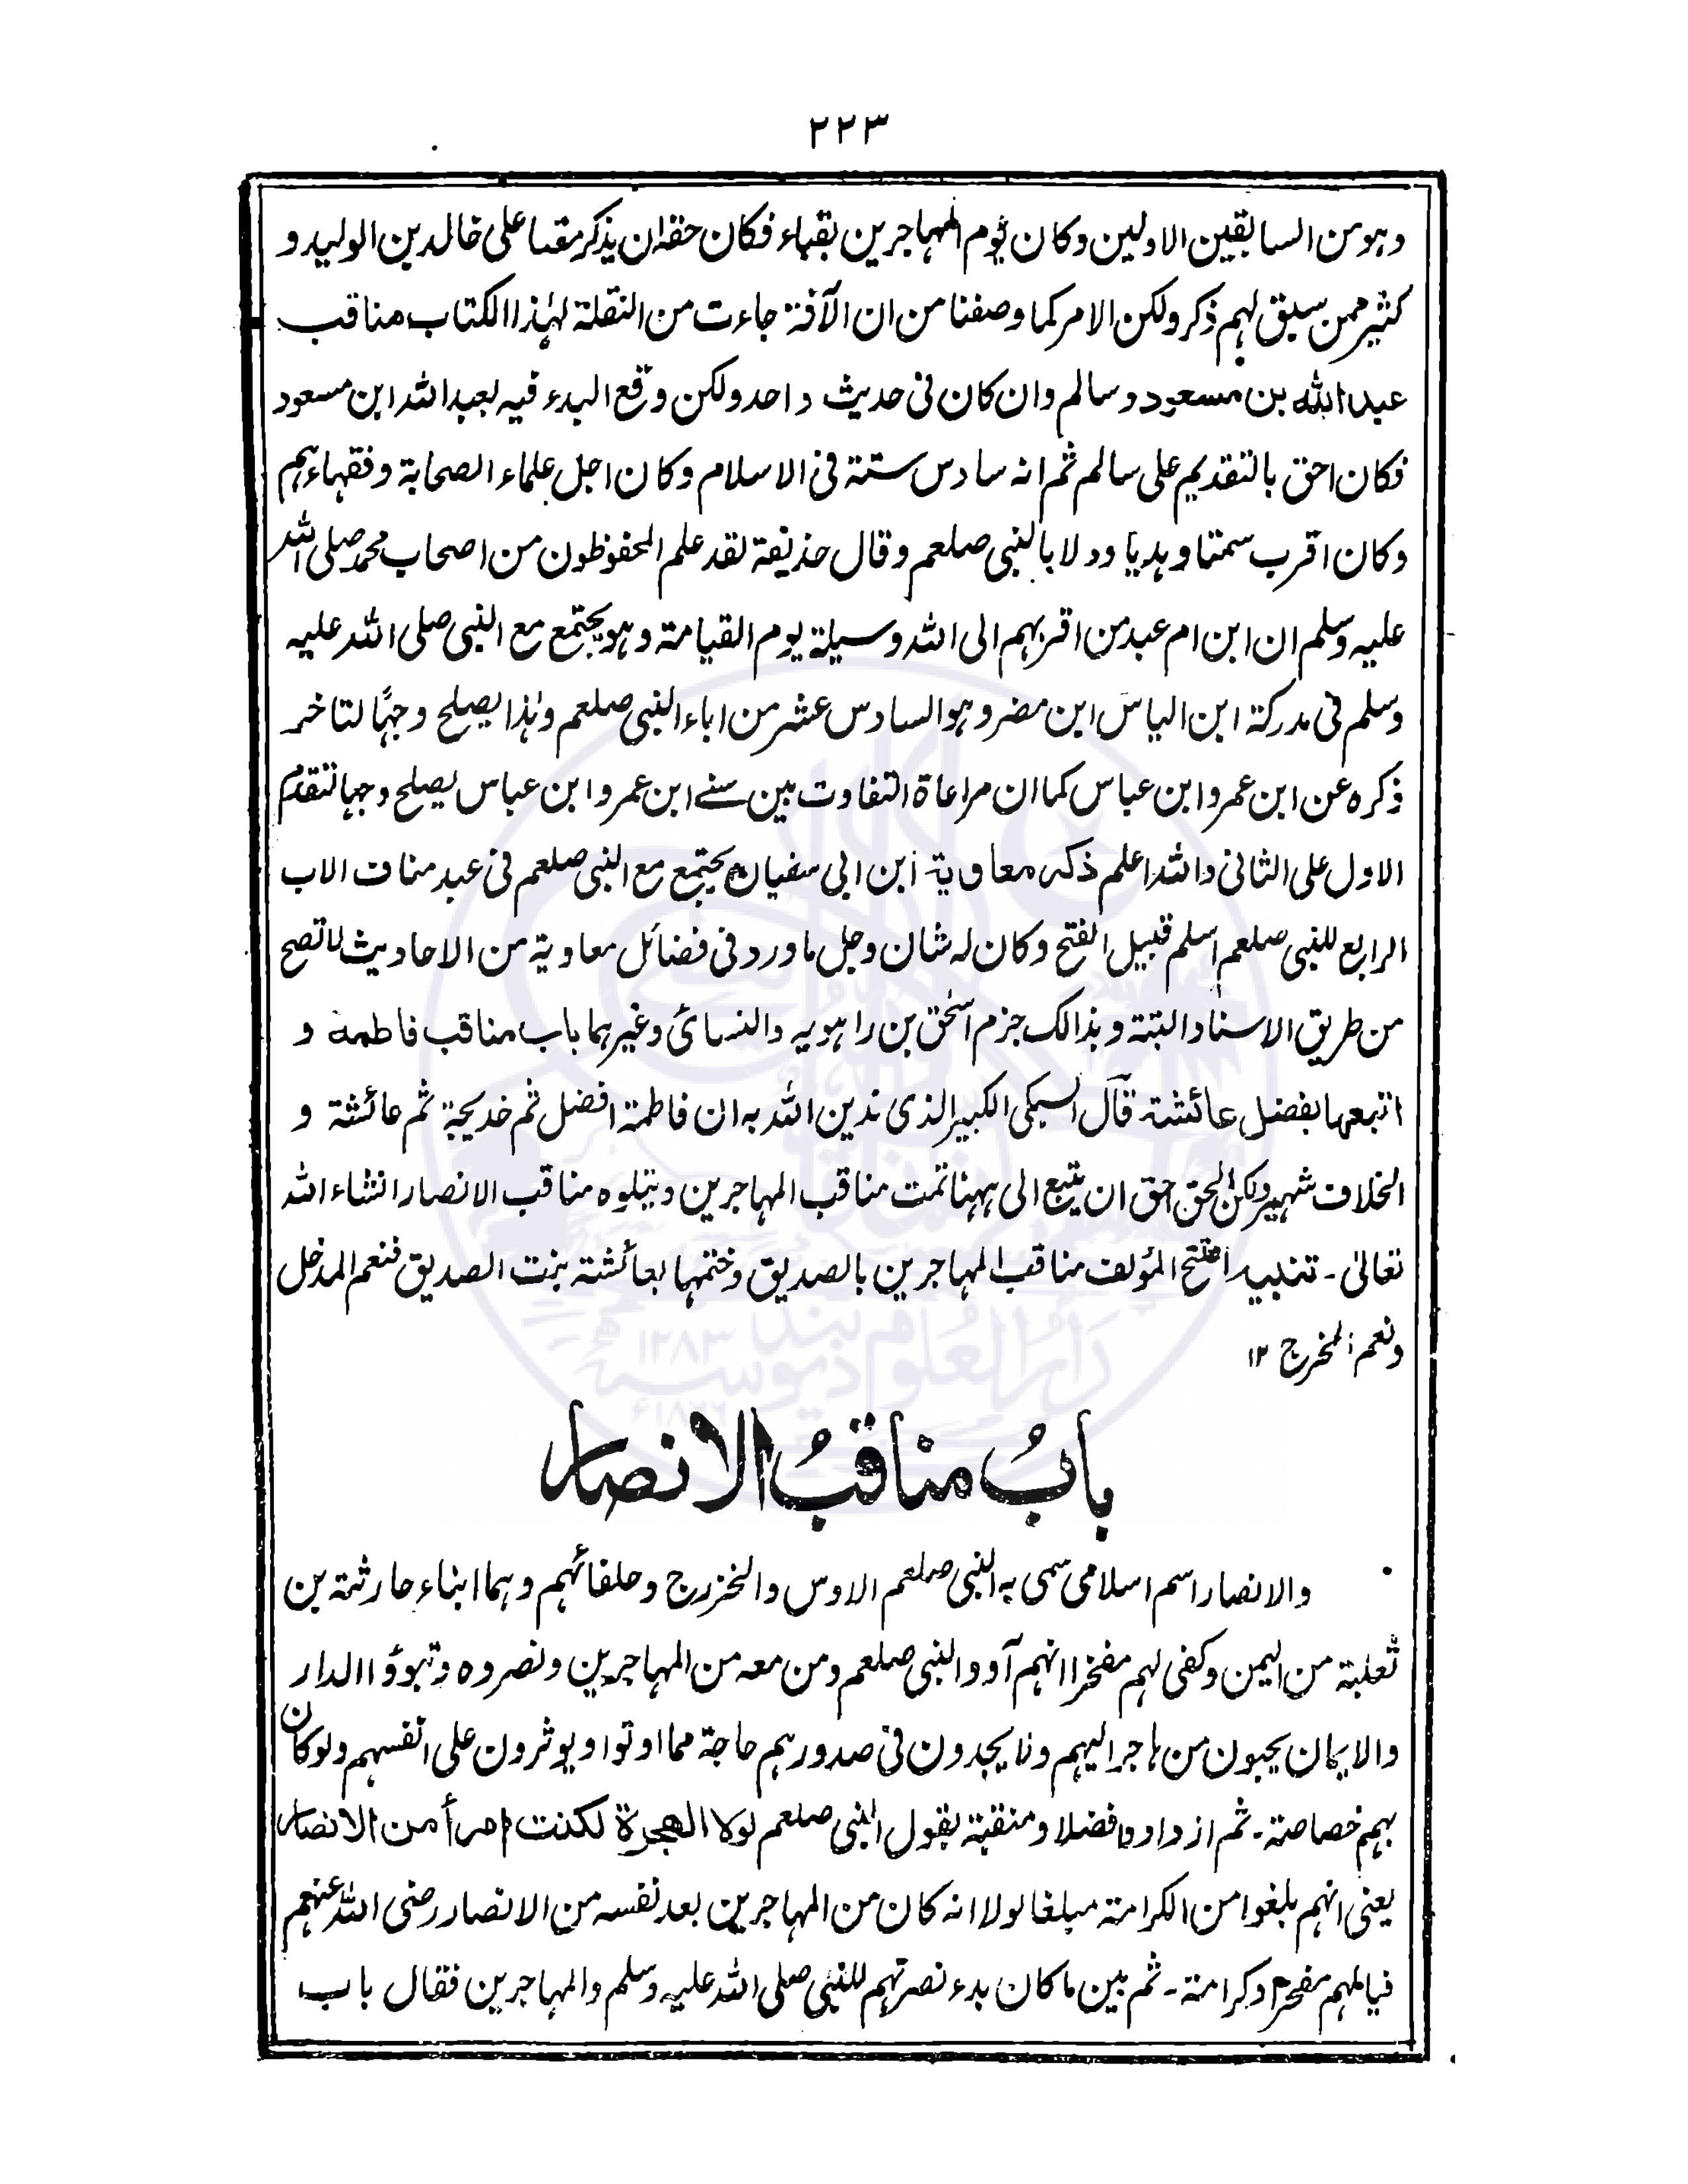 ٢٢٣
وهو من السابقين الاولين وكان يؤم المهاجرين بقباء فكان حقه ان يذكر مقدما على خالد بن الوليد و
كثير ممن سبق لهم ذكر ولكن الامر كما وصفنا من ان الآفة جاءت من النقلة لهذا الكتاب مناقب
عبد الله بن مسعود وسالم وان كان فى حديث واحد ولكن وقع البدء فيه لعبد الله ابن مسعود
فكان احق بالتقديم على سالم ثم انه سادس ستة فى الاسلام وكان اجل علماء الصحابة وفقهاءهم
وكان اقرب سمتا وهديا ودلا بالنبى صلعم وقال حذيفة لقد علم المحفوظون من اصحاب محمد صلى الله
عليه وسلم ان ابن ام عبد من اقربهم الى الله وسيلة يوم القيامة وهو يجتمع مع النبى صلى الله عليه
وسلم فى مدركة ابن الياس ابن مضر وهو السادس عشر من اباء النبى صلعم وهذا يصلح وجهًا لتاخر
ذكره عن ابن عمر وابن عباس كما ان مراعاة التفاوت بين سنے ابن عمر وابن عباس يصلح وجها لتقدم
الاول على الثانى والله اعلم ذكر معاوية ابن ابى سفيان يجتمع مع النبى صلعم فى عبد مناف الاب
الرابع للنبى صلعم اسلم قبيل الفتح وكان له شان وجل ما ورد فى فضائل معاوية من الاحاديث لا تصح
من طريق الاسناد البتة وبذالك جزم اسحٰق بن راهويه والنسائى وغيرهما باب مناقب فاطمة و
اتبعها بفضل عائشة قال السبكى الكبير الذى ندين الله به ان فاطمة افضل ثم خديجة ثم عائشة و
الخلاف شهير ولكن الحق احق ان يتبع الى ههنا تمت مناقب المهاجرين ويتلوه مناقب الانصار انشاء الله
تعالىٰ - تنبيه افتتح المؤلف مناقب المهاجرين بالصديق وختمها بعائشة بنت الصديق فنعم المدخل
ونعم المخرج ١٢
بابُ مناقبُ الانصار
والانصار اسم اسلامى سمى به النبى صلعم الاوس والخزرج وحلفائهم وهما ابناء حارثة بن
ثعلبة من اليمن وكفى لهم مفخرا انهم آووا النبى صلعم ومن معه من المهاجرين ونصروه وتبوؤا الدار
والايمان يحبون من هاجر اليهم ولا يجدون فى صدورهم حاجة مما اوتوا ويوثرون على انفسهم ولو كان
بهم خصاصة - ثم ازدادوا فضلا ومنقبة بقول النبى صلعم لولا الهجرة لكنت امرأ من الانصار
يعنى انهم بلغوا من الكرامة مبلغا لولا انه كان من المهاجرين بعد نفسه من الانصار رضى الله عنهم
فيا لهم مفخرا وكرامة - ثم بين ما كان بدء نصرتهم للنبى صلى الله عليه وسلم والمهاجرين فقال باب
دار العلوم ديوبند
١٢٨٣ھ
١٨٦٦ء